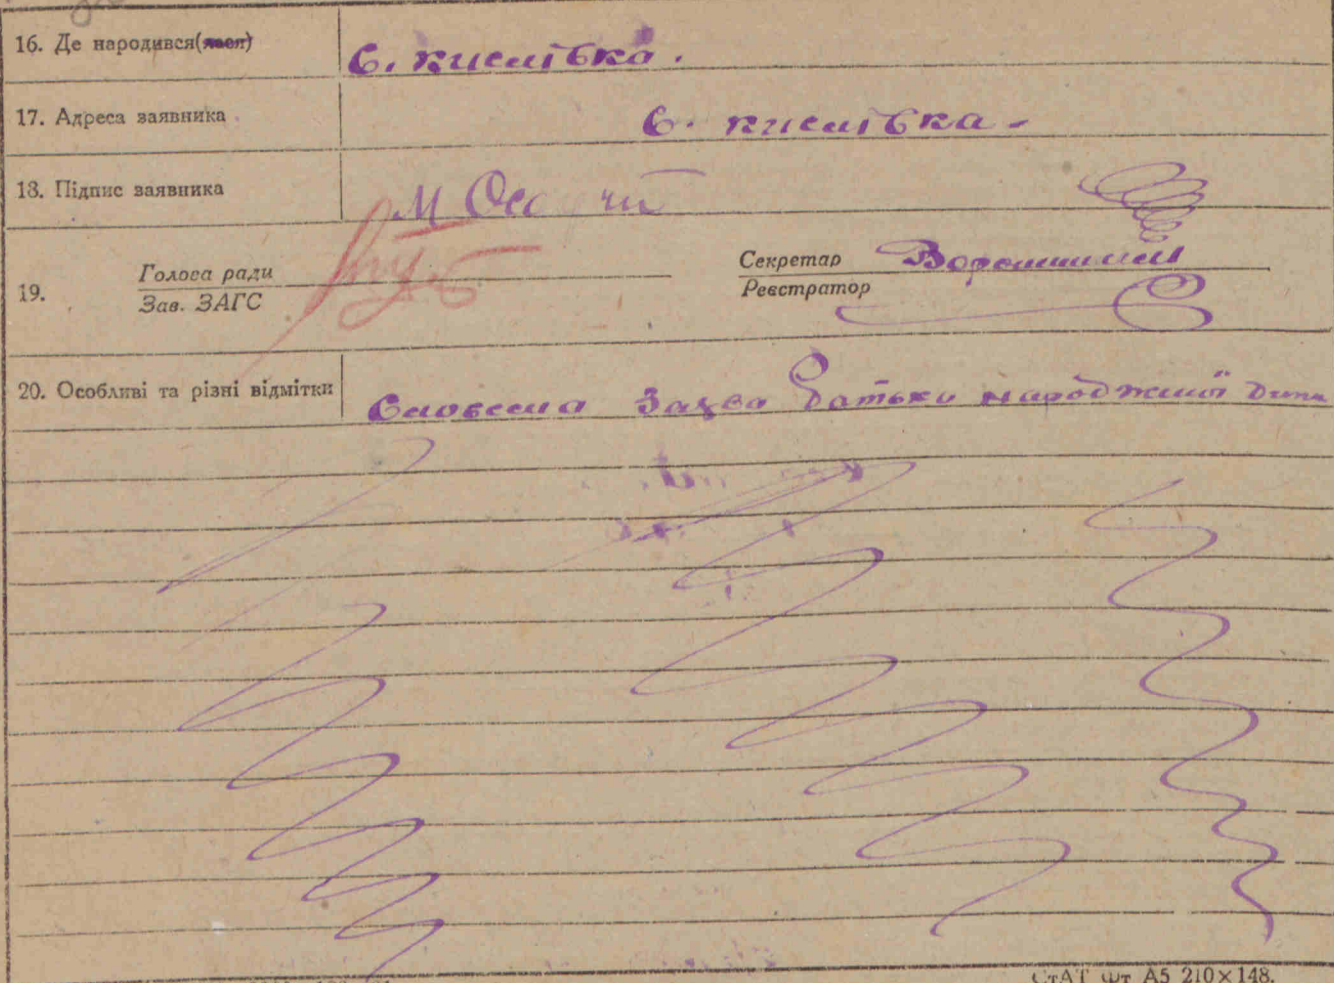 16. Де народився(лася) с. кислівка.
17. Адреса заявника с. кислівка -
18. Підпис заявника М
Голова ради Секретар
19. Зав. ЗАГС Реєстратор
20. Особливі та різні відмітки Словесна Заява батька народженої дити
СтАТ фт А5 210×148.